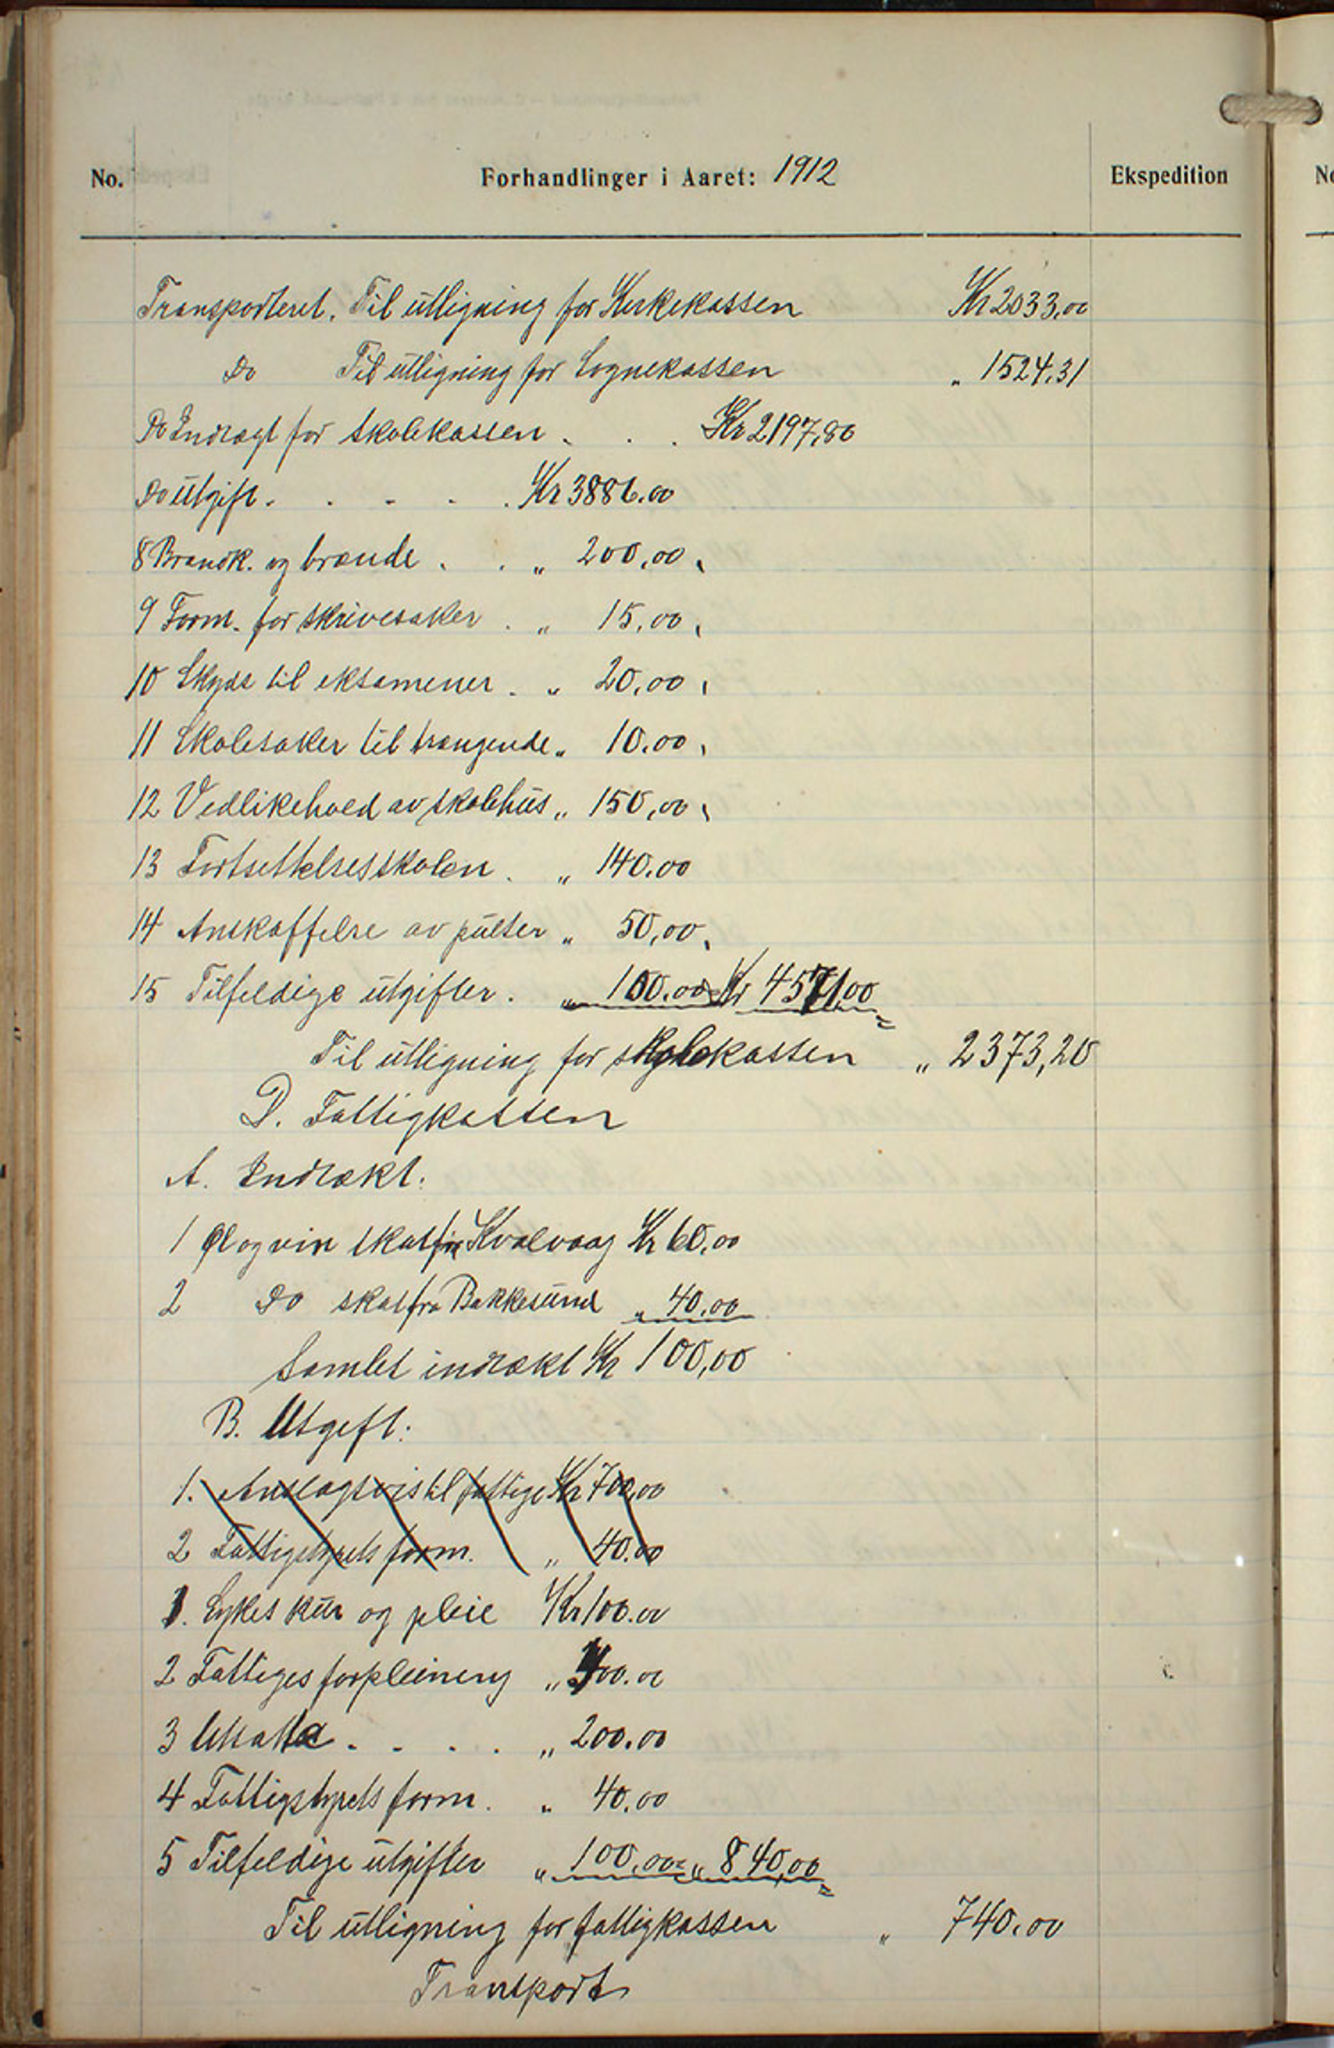 No.
Forhandlinger i Aaret: 1912
Ekspedition
No
Transporteret. Til utligning for Kirkekassen Kr 2033,00
Do Til utligning for Sognekassen " 1524,31
Do Indtægt for skolekassen . . . Kr 2197,80
Do utgift . . . . . Kr 3886.00
8 Brandk. og brænde . . " 200,00
9 Form. for skrivesaker . " 15,00
10 Skyds til eksamener . " 20,00
11 Skolesaker til trængende " 10.00
12 Vedlikehold av skolehus " 150,00
13 Fortsettelsesskolen . " 140.00
14 Anskaffelse av pulter " 50,00
15 Tilfeldige utgifter . " 100.00 = Kr 4571,00
Til utligning for skolekassen " 2373,20
D. Fattigkassen
A. Indtækt:
1 Øl og vin skat fra Kvalvaag Kr 60,00
2 Do skat fra Bakkesund " 40,00
Samlet indtækt Kr 100,00
B. Utgift:
1. Anslagsvis til fattige Kr 700,00
2 Fattigstyrets form. " 40.00
1. Sykes kur og pleie Kr 100.00
2 Fattiges forpleining " 400.00
3 Utsatte . . . . " 200.00
4 Fattigstyrets form. " 40.00
5 Tilfeldige utgifter " 100,00 = " 840,00
Til utligning for fattigkassen " 740.00
Transport